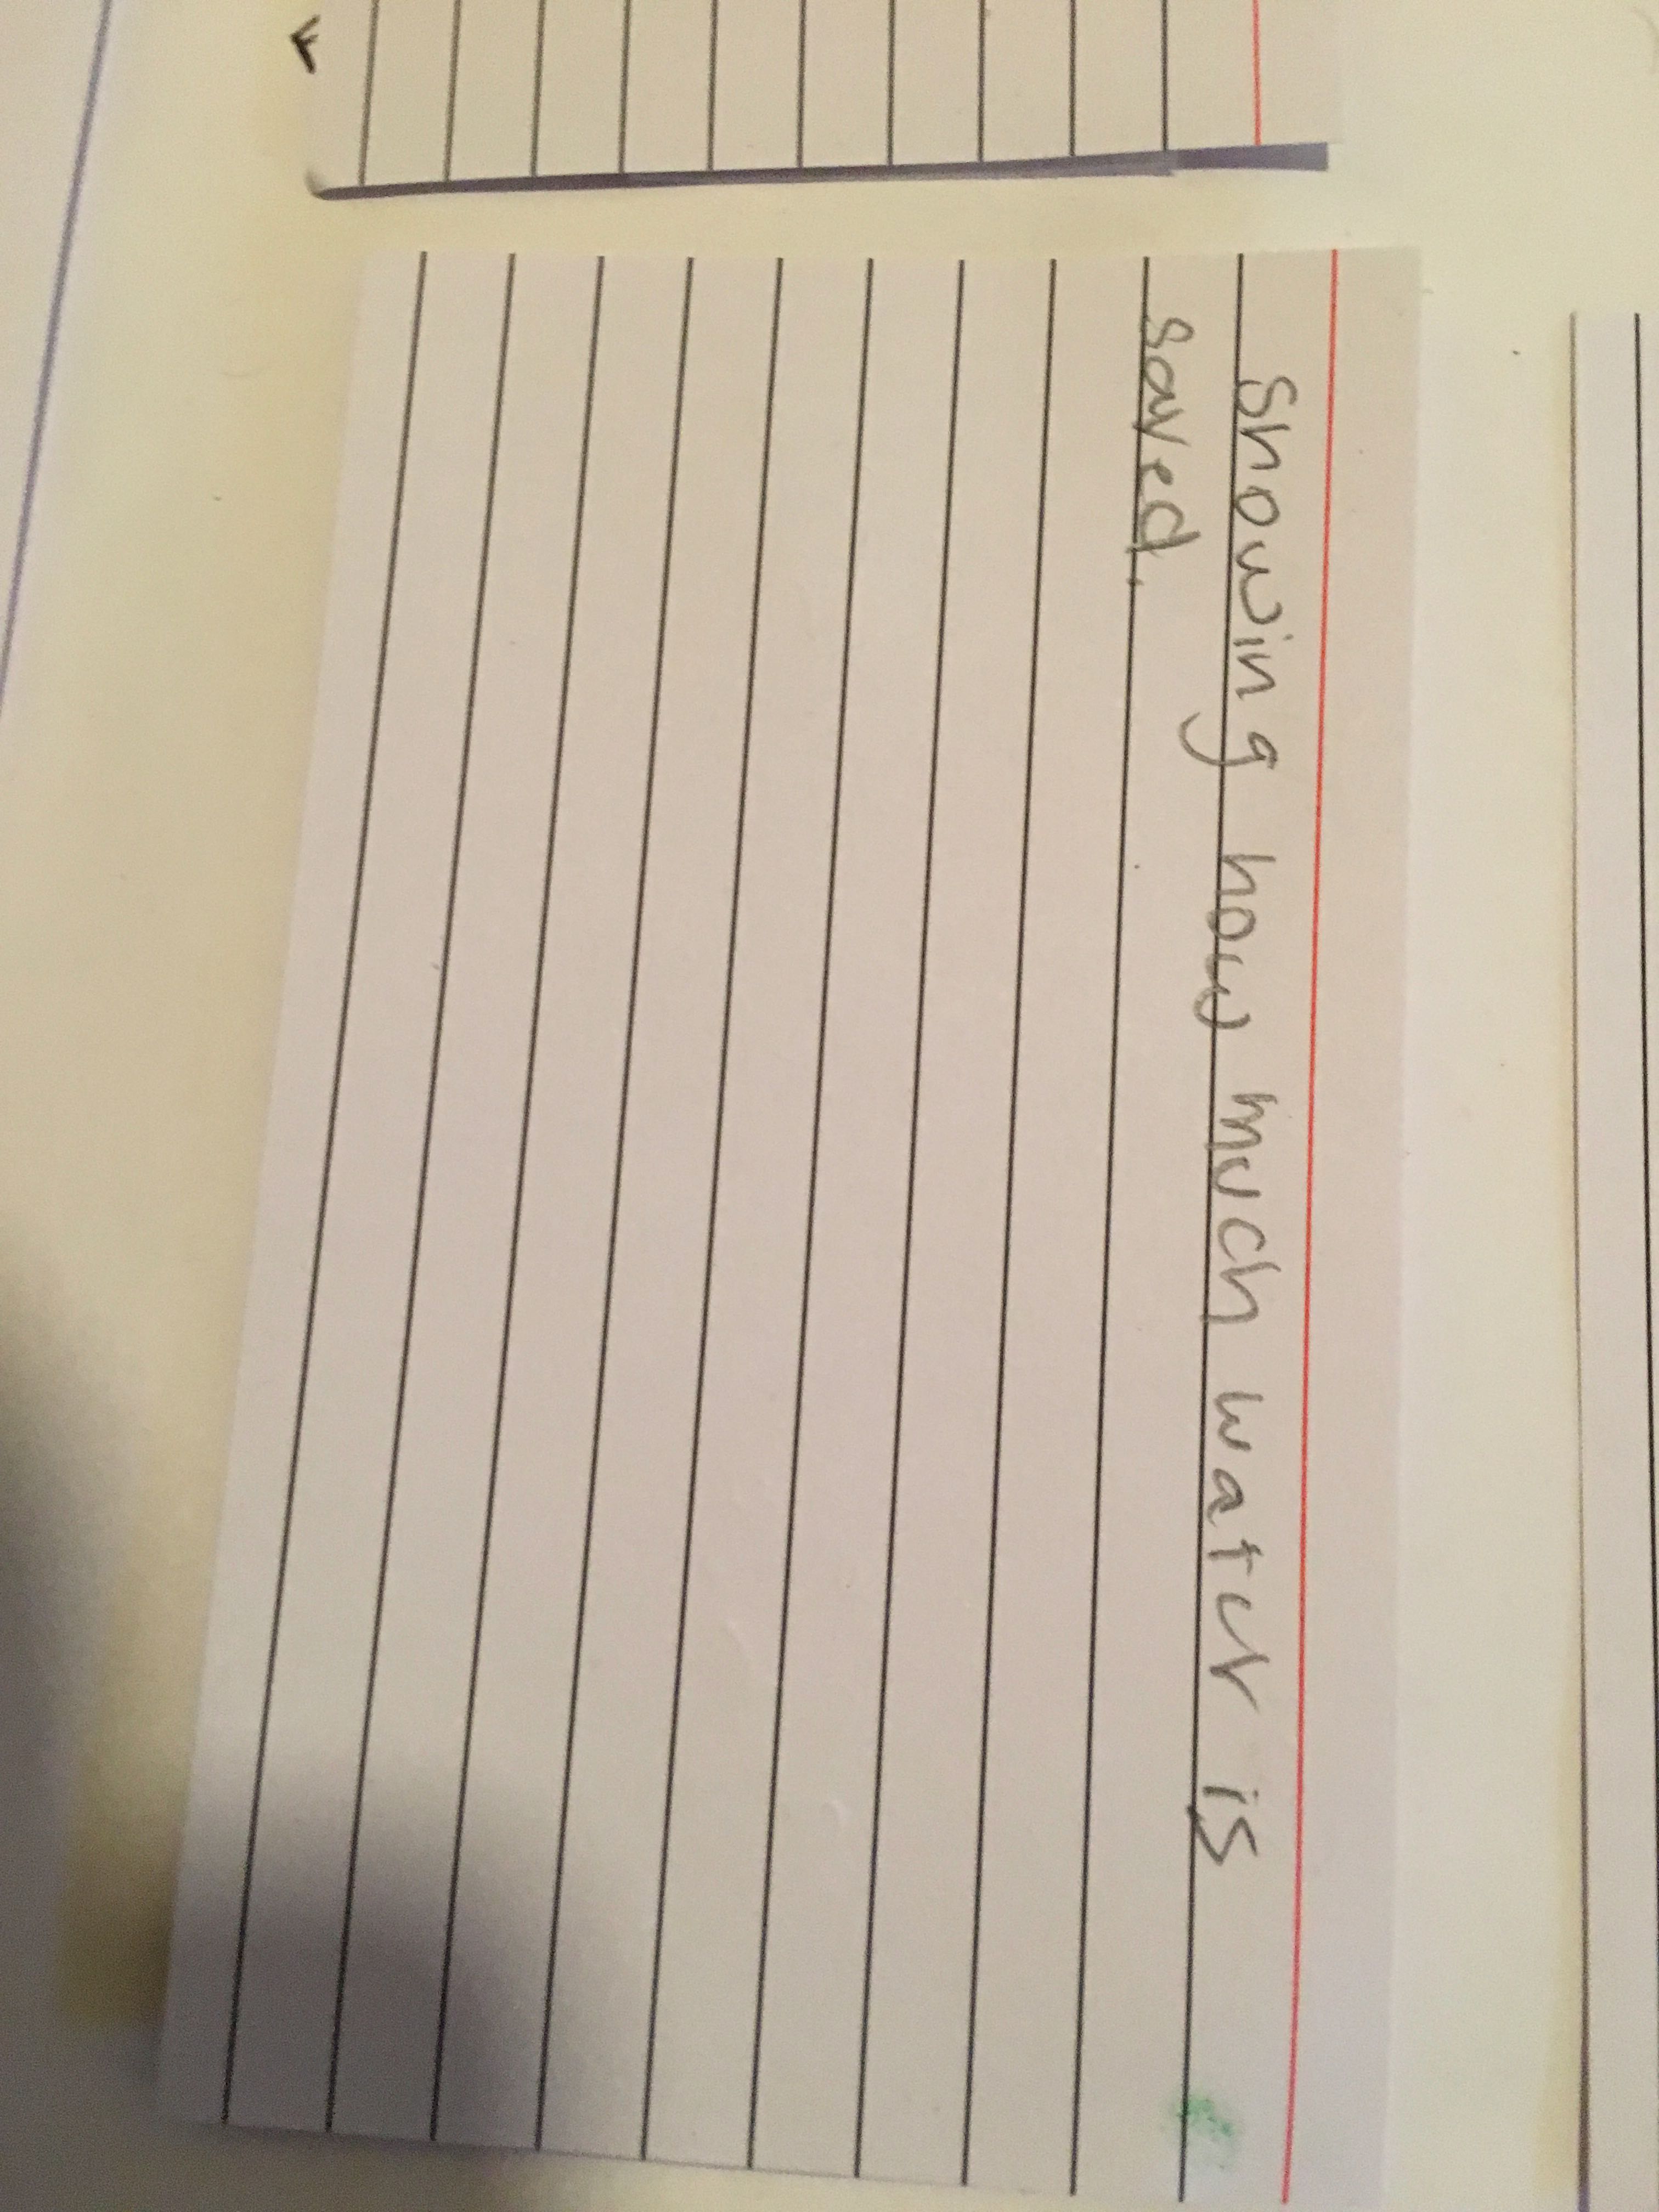 Showing how much water is
saved.